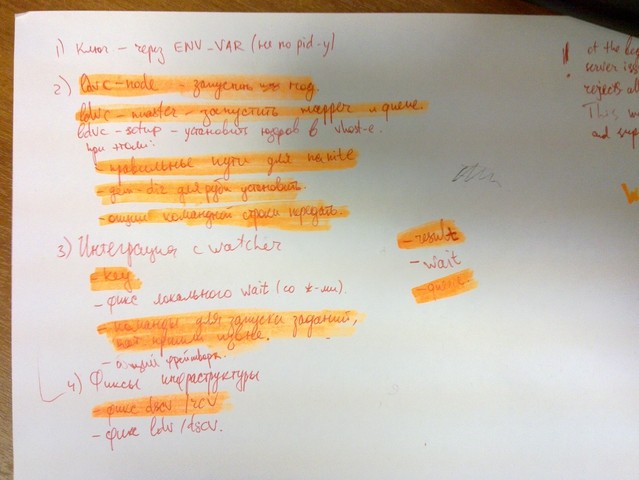 1) Ключ – через ENV_VAR (не по pid-у)
2) ldvc-node – запустить нод.
ldvc-master – запустить mapper и queue
ldvc-setup – установить ядров в vhost-е.
при этом:
– правильные пути для
– gem-dir для руби установить.
– опции командной строки передать.
3) Интеграция с watcher
– key.
– фикс локального wait (со *-ми).
– команды для запуска заданий,
пришли извне.
– общий фреймворк.
4) Фиксы инфраструктуры
– фикс dscv/rcv
– фикс ldv/dscv.
– result
– wait
– queue.
of the
server
rejects
This
and